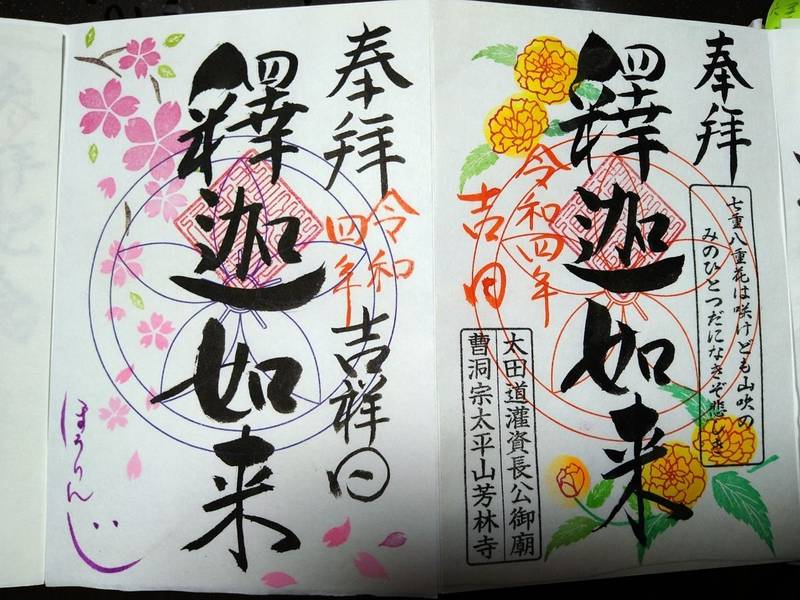 奉拝
七重八重花は咲けども山吹の
みのひとつだになきぞ悲しき
釋迦如来
令和四年
吉日
太田道灌資長公御廟
曹洞宗太平山芳林寺
奉拝
令和
四年
吉祥日
釋迦如来
ほうりんじ